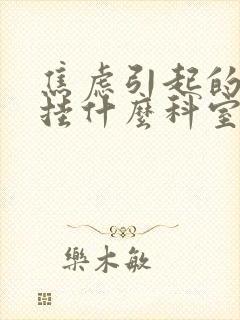 焦虑引起的
挂什麼科室
樂木敏